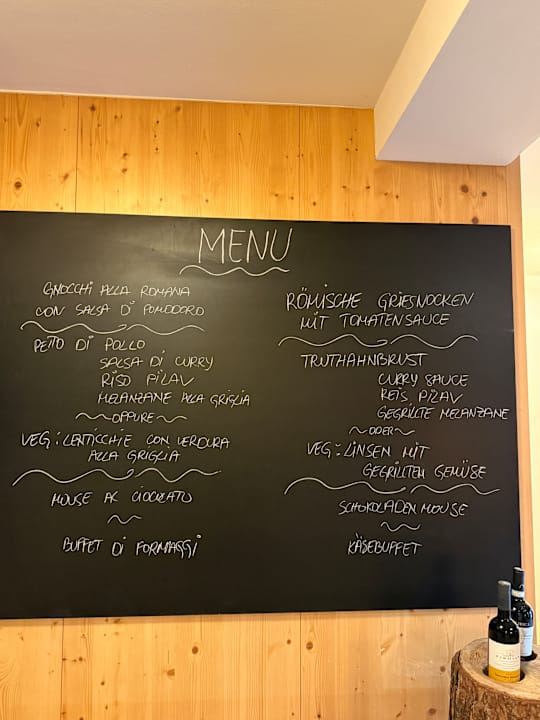 MENU
GNOCCHI ALLA ROMANA
CON SALSA DI POMODORO
PETTO DI POLLO
SALSA DI CURRY
RISO PILAV
MELANZANE ALLA GRIGLIA
~OPPURE~
VEG: LENTICCHIE CON VERDURA
ALLA GRIGLIA
MOUSE AL CIOCCLATO
BUFFET DI FORMAGGI
RÖMISCHE GRIESNOCKEN
MIT TOMATENSAUCE
TRUTHAHNBRUST
CURRY SAUCE
REIS PILAV
GEGRILLTE MELANZANE
~ODER~
VEG: LINSEN MIT
GEGRILLTEM GEMÜSE
SCHOKOLADEN MOUSE
KÄSEBUFFET